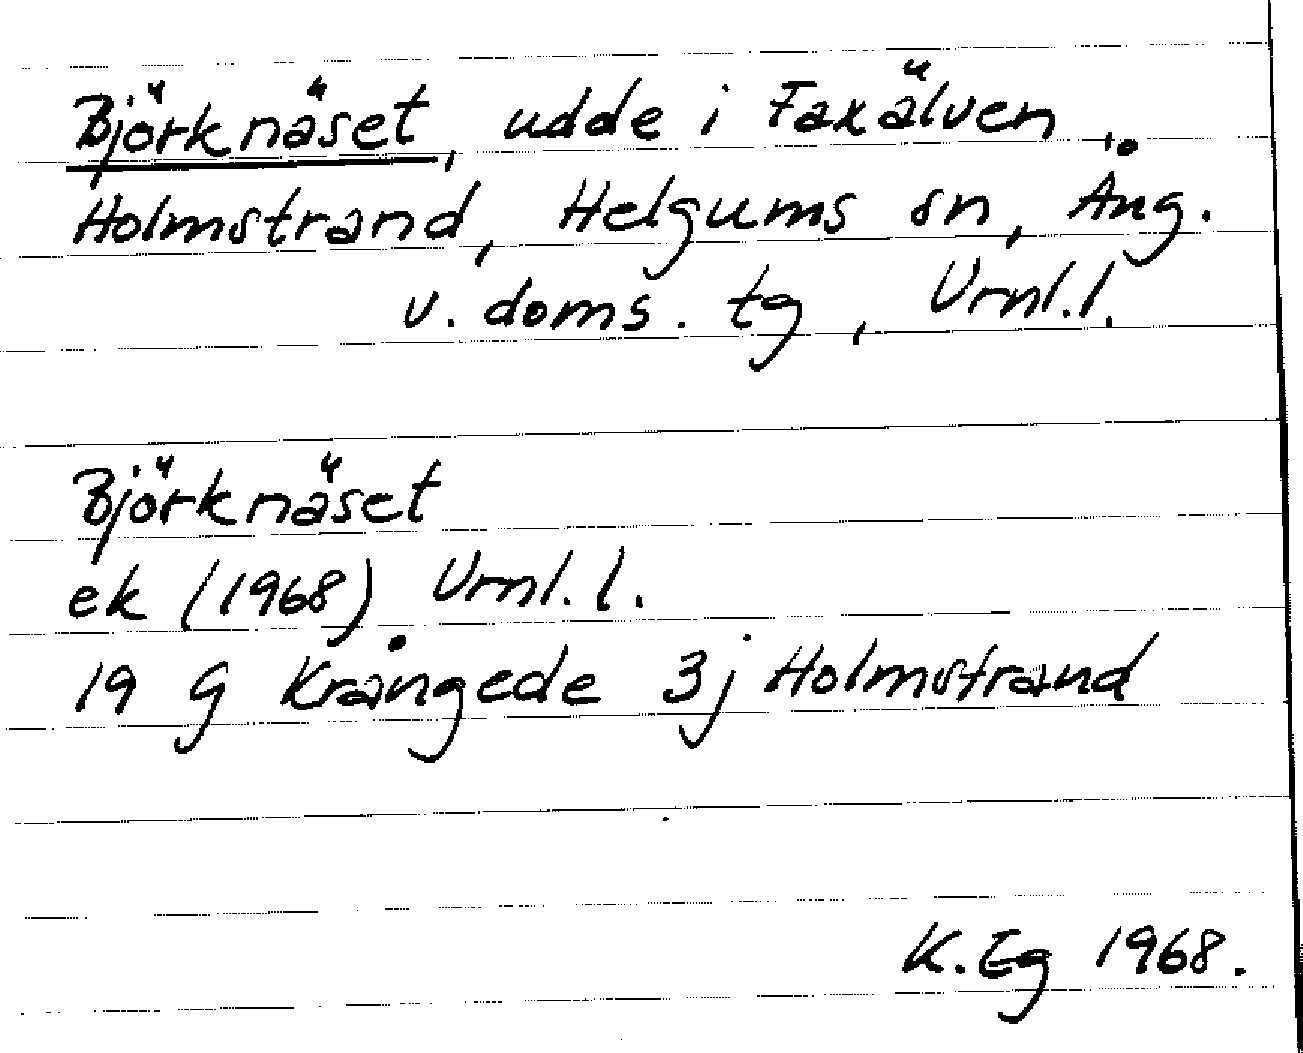 Björknäset, udde i Faxälven,
Holmstrand, Helgums sn, Ång.
v. doms. tg, Vrnl.l.
Björknäset
ek (1968) Vrnl.l.
19 G Krångede 3j Holmstrand
K.Eg 1968.